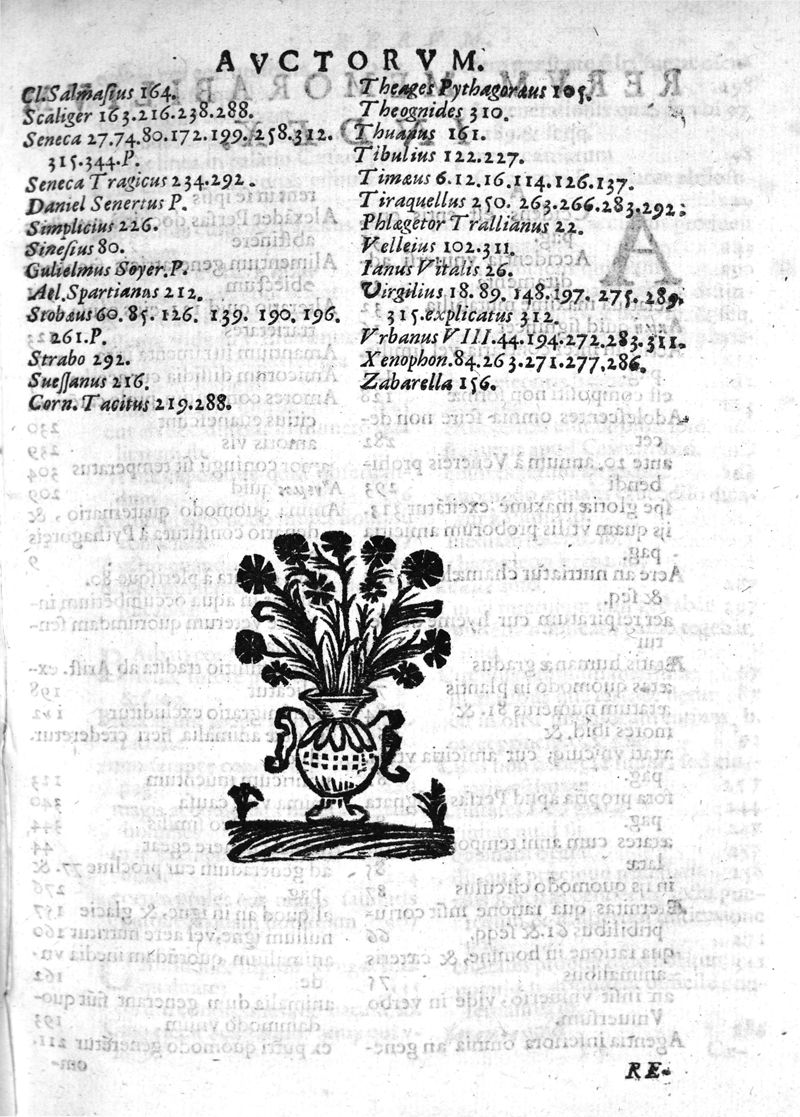 AVCTORVM.
Cl. Salmasius 164.
Scaliger 163.216.238.288.
Seneca 27.74.80.172.199.258.312.
315.344.P.
Seneca Tragicus 234.292.
Daniel Senertus P.
Simplicius 226.
Sinesius 80.
Gulielmus Soyer.P.
Ael. Spartianus 212.
Stobæus 60.85.126. 139. 190. 196.
261.P.
Strabo 292.
Suessanus 216.
Corn. Tacitus 219.288.
Theages Pythagoræus 105.
Theognides 310.
Thuanus 161.
Tibulius 122.227.
Timæus 6.12.16.114.126.137.
Tiraquellus 250. 263.266.283.292;
Phlægetor Trallianus 22.
Velleius 102.311.
Ianus Vitalis 26.
Virgilius 18.89. 148.197. 275.289.
315.explicatus 312.
Vrbanus VIII.44.194.272.283.311.
Xenophon.84.263.271.277.286.
Zabarella 156.
RE-